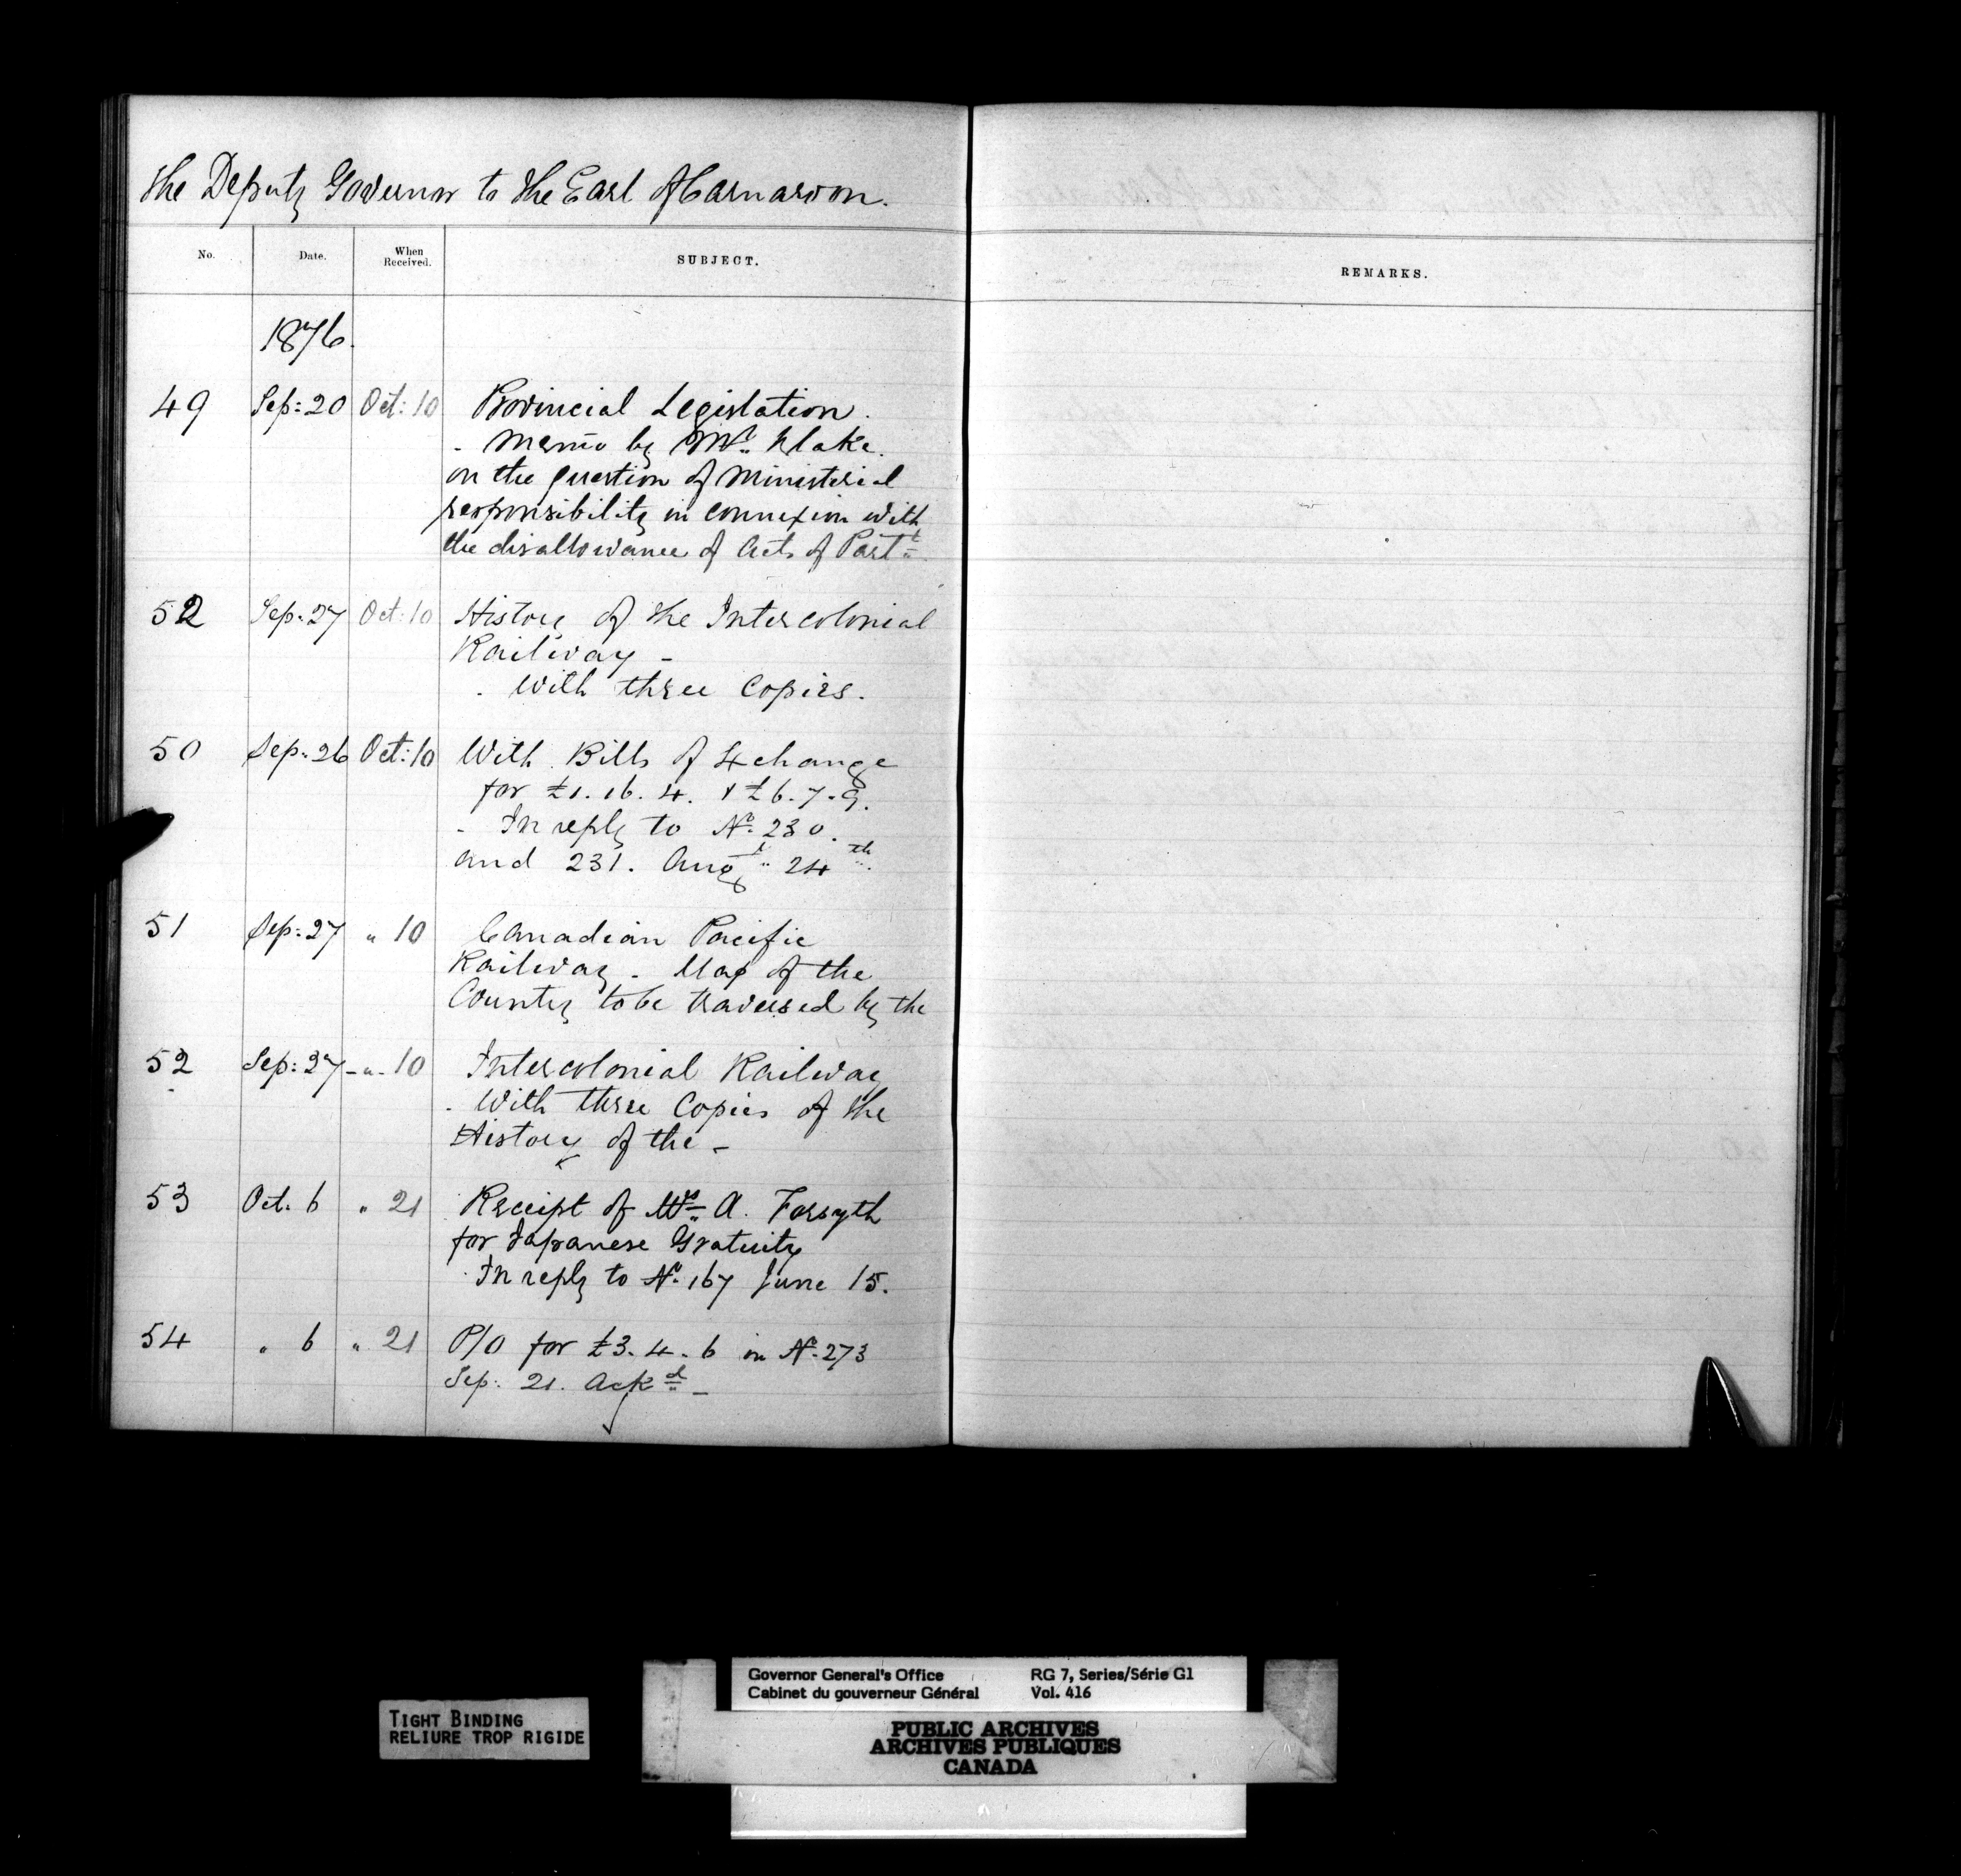 The Deputy Governor to the Earl of Carnarvon.
No. Date. When Received. SUBJECT. REMARKS.
1876.
49 Sep: 20 Oct: 10 Provincial Legislation.
- Memo by Mr. Blake.
on the question of Ministerial
responsibility in connexion with
the disallowance of Acts of Parlt
52 Sep. 27 Oct: 10 History of the Intercolonial
Railway -
- With three Copies.
50 Sep. 26 Oct: 10 With Bills of Exchange
for £1. 16. 4. & £6. 7. 9.
- In reply to No. 230.
and 231. Augt 24th.
51 Sep: 27 " 10 Canadian Pacific
Railway - Map of the
Country to be traversed by the
52 Sep: 27 - " - 10 Intercolonial Railway
- With three Copies of the
History of the -
53 Oct. 6 " 21 Receipt of Mrs A. Forsyth
for Japanese Gratuity
In reply to No. 167 June 15.
54 " 6 " 21 P/O for £3. 4. 6 in No. 273
Sep: 21. Ackd -
TIGHT BINDING
RELIURE TROP RIGIDE
Governor General's Office RG 7, Series/Série G1
Cabinet du gouverneur Général Vol. 416
PUBLIC ARCHIVES
ARCHIVES PUBLIQUES
CANADA